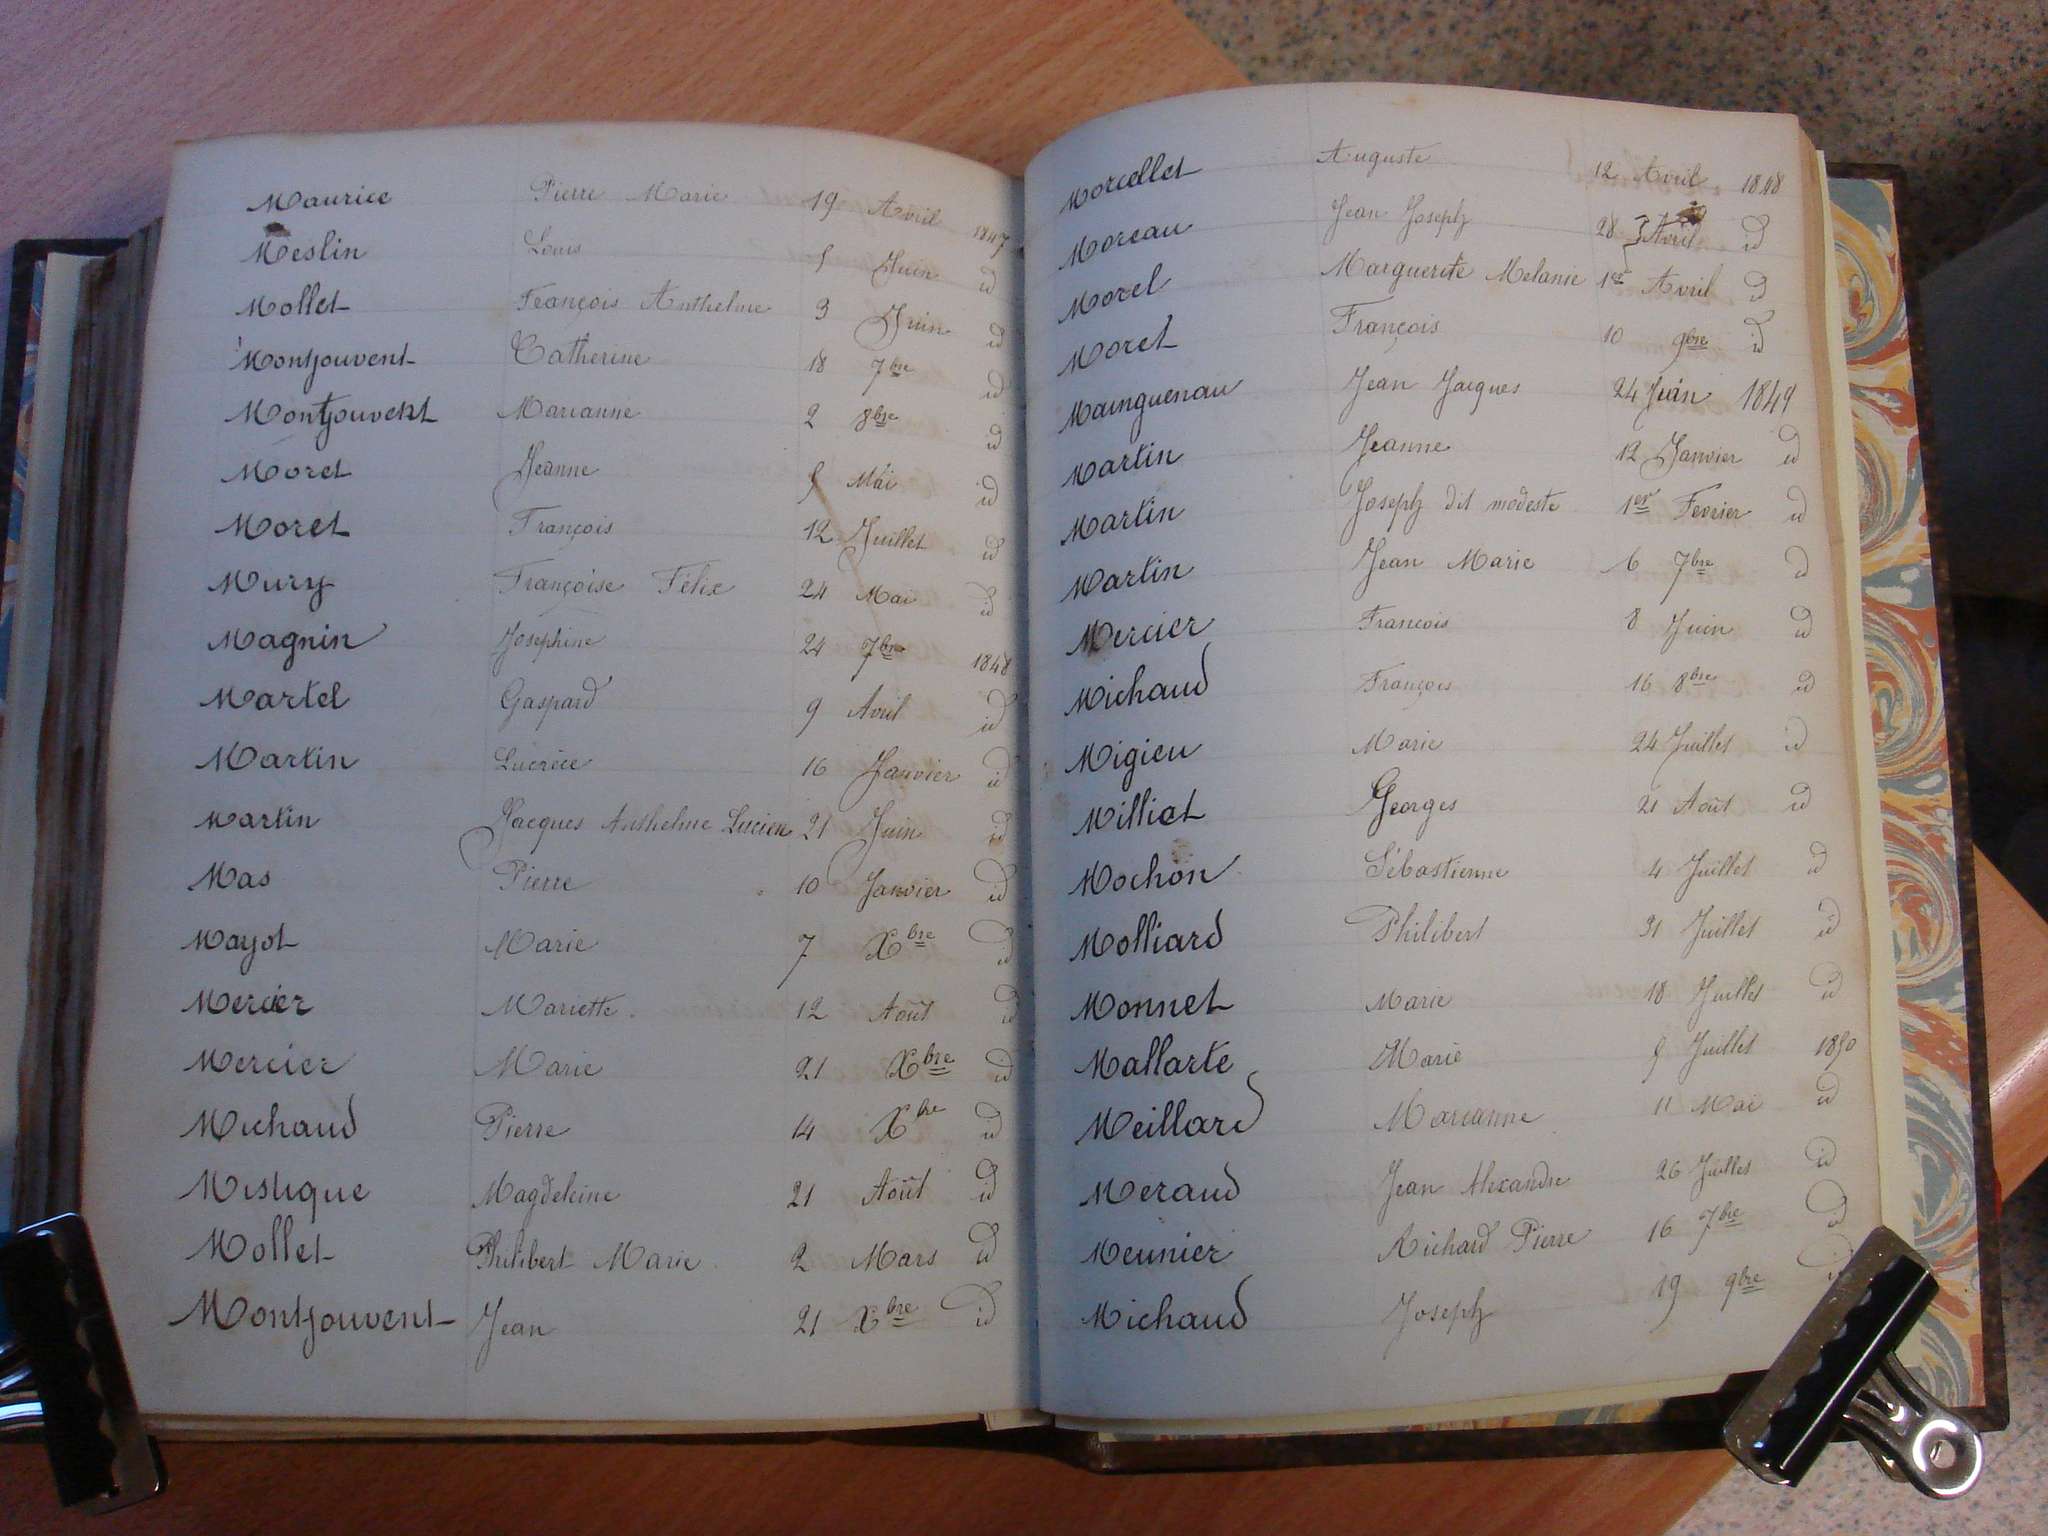 Maurice Pierre Marie 19 Avril 1847
Meslin Louis 5 Juin id
Mollet François Anthelme 3 Juin id
Montjouvent Catherine 18 7bre id
Montjouvent Marianne 2 8bre id
Moret Jeanne 5 Mai id
Moret François 12 Juillet id
Mury Françoise Félix 24 Mai id
Magnin Josephine 24 7bre 1848
Martel Gaspard 9 Avril id
Martin Lucrèce 16 Janvier id
Martin Jacques Anthelme Lucien 21 Juin id
Mas Pierre 10 Janvier id
Mayot Marie 7 Xbre id
Mercier Mariette 12 Août id
Mercier Marie 21 Xbre id
Michaud Pierre 14 Xbre id
Mistique Magdeleine 21 Août id
Mollet Philibert Marie 2 Mars id
Montjouvent Jean 21 Xbre id
Morcellet Auguste 12 Avril 1848
Moreau Jean Joseph 28 Avril id
Morel Marguerite Melanie 1er Avril id
Moret François 10 9bre id
Mainguenau Jean Jacques 24 Juin 1849
Martin Jeanne 12 Janvier id
Martin Joseph dit modeste 1er Fevrier id
Martin Jean Marie 6 7bre id
Mercier Francois 8 Juin id
Michaud François 16 8bre id
Migieu Marie 24 Juillet id
Milliat Georges 21 Août id
Mochon Sébastienne 4 Juillet id
Molliard Philibert 31 Juillet id
Monnet Marie 18 Juillet id
Mallarte Marie 5 Juillet 1850
Meillard Marianne 11 Mai id
Meraud Jean Alexandre 26 Juillet id
Meunier Richard Pierre 16 7bre id
Michaud Joseph 19 9bre id